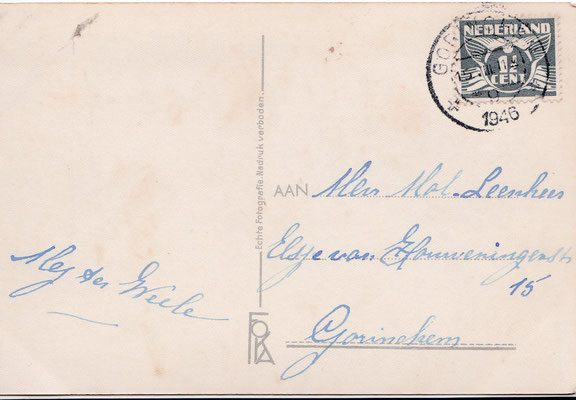 NEDERLAND
1½
CENT
1946
Echte Fotografie. Nadruk verboden.
AAN Mevr Mol-Leenheer
Elsje van Houweningenstr
15
Gorinchem
Mej ter Weele
FOKA